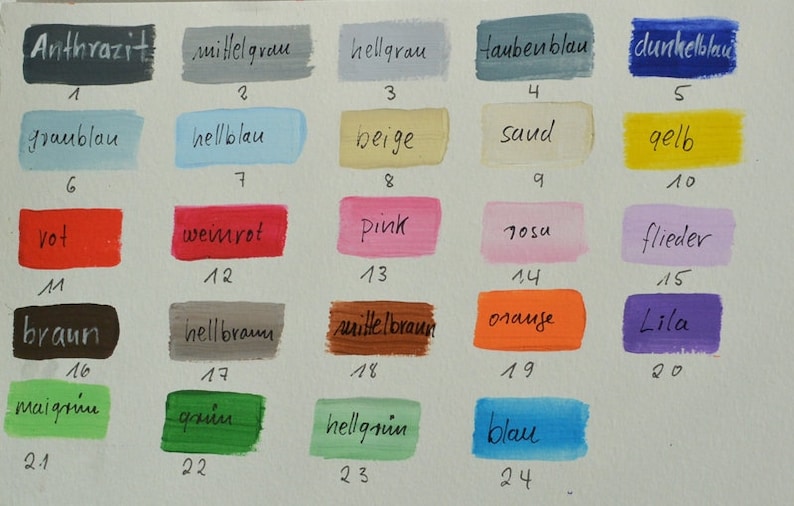 Anthrazit mittelgrau hellgrau taubenblau dunkelblau
1 2 3 4 5
graublau hellblau beige sand gelb
6 7 8 9 10
rot weinrot pink rosa flieder
11 12 13 14 15
braun hellbraun mittelbraun orange Lila
16 17 18 19 20
maigrün grün hellgrün blau
21 22 23 24